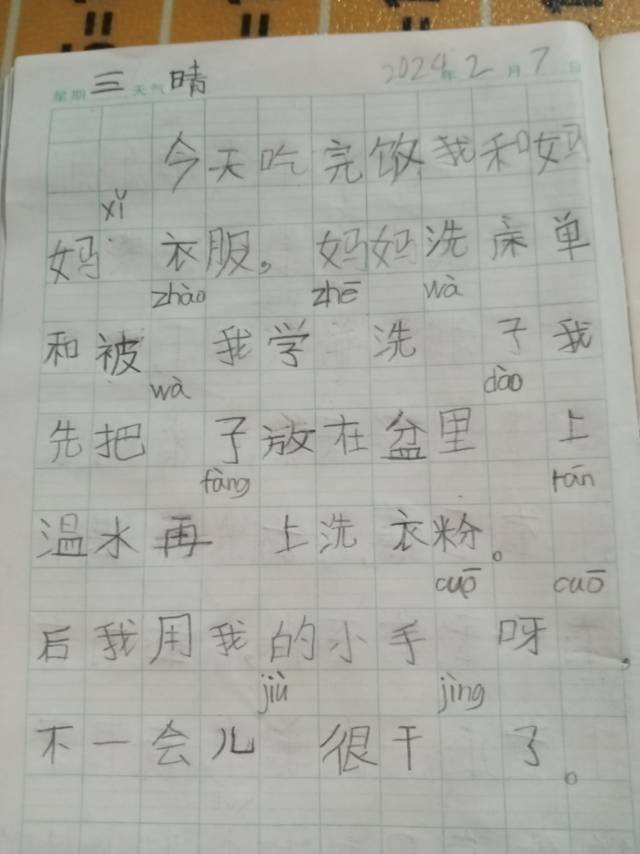 星期 三 天气 晴 2024年 2月 7日
今天吃完饭我和妈
xǐ
妈 衣服。妈妈洗床单
zhào zhē wà
和被 我学 洗 子我
wà dào
先把 子放在盆里 上
fàng rán
温水再 上洗衣粉。
cuō cuō
后我用我的小手 呀
jiù jìng
不一会儿 很干 了。